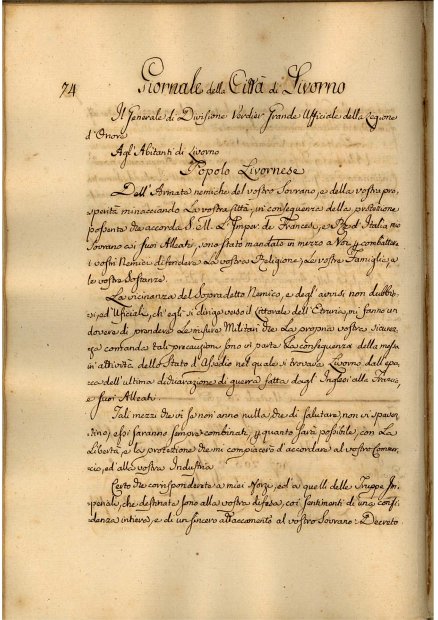 74 Giornale della Città di Livorno
Il Generale di Divisione Verdier Grande Uffiziale della Legione
d'Onore
Agl'Abitanti di Livorno
Popolo Livornese
Dell'Armate nemiche del vostro Sovrano, e della vostra pro,
sperità minacciando La vostra Città, in conseguenza della protezione
possente che accorda S. M. L'Imper. de Francesi, e Rè d'Italia mio
Sovrano ai suoi Alleati, sono stato mandato in mezzo a Voi p. combattere
i vostri Nemici difendere La vostra Religione, Le vostre Famiglie, e
le vostre Sostanze.
La vicinanza del Sopradetto Nemico, e degl'avvisi non dubbi,
si, ed'Uficiali, ch'egli si dirige verso il Littorale dell'Etruria, mi fanno un
dovere di prendere Le misure Militari che La propria vostra sicurez,
za comanda tali precauzioni sono in parte La conseguenza della messa
in attività dello Stato d'Assedio nel quale si trovava Livorno dall'epo,
ca dell'ultima dichiarazione di guerra fatta dagl'Inglesi alla Francia,
e suoi Alleati.
Tali mezzi che in se non anno nulla, che di salutare, non vi spaven,
tino, essi saranno sempre combinati, p. quanto sarà possibile, con La
Libertà, e la protezione che mi compiacerò d'accordare al vostro Commer,
cio, ed alla vostra Industria
Certo che corrisponderete a miei sforzi, ed a quelli delle Truppe Im,
periali, che destinate sono alla vostra difesa, coi sentimenti di una confi,
denza intiera, e di un sincero attaccamento al vostro Sovrano: Decreto